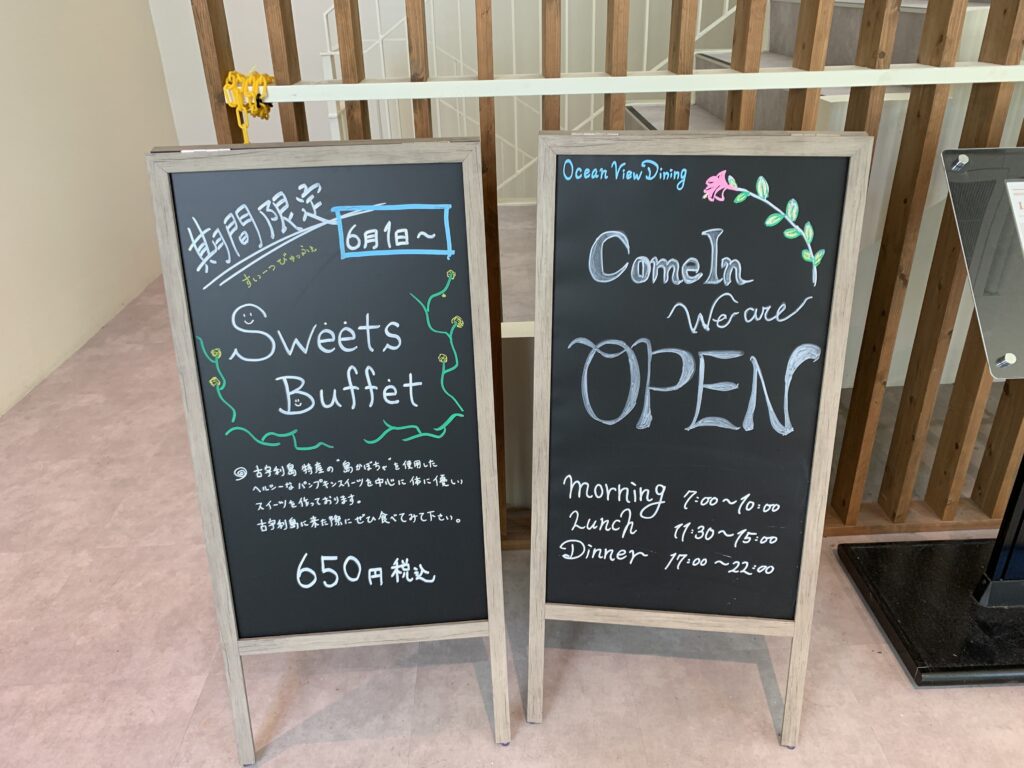 期間限定
6月1日～
すいーつびゅっふぇ
Sweets
Buffet
古宇利島特産の"島かぼちゃ"を使用した
ヘルシーなパンプキンスイーツを中心に体に優しい
スイーツを作っております。
古宇利島に来た際にぜひ食べてみて下さい。
650円税込
Ocean View Dining
Come In
We are
OPEN
Morning 7:00～10:00
Lunch 11:30～15:00
Dinner 17:00～22:00